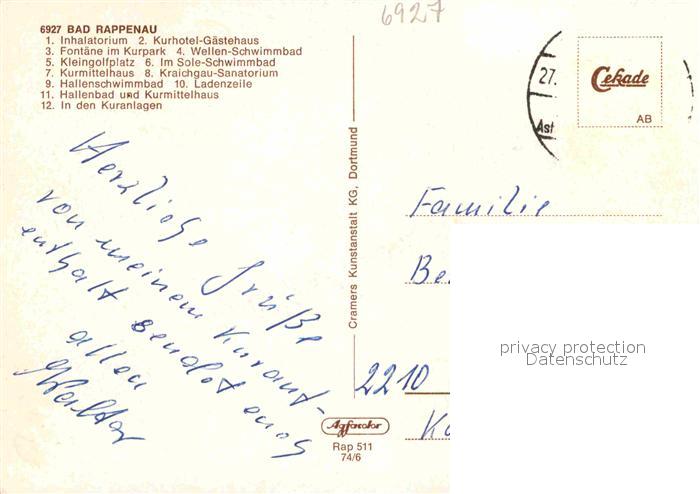 6927
6927 BAD RAPPENAU
1. Inhalatorium 2. Kurhotel-Gästehaus
3. Fontäne im Kurpark 4. Wellen-Schwimmbad
5. Kleingolfplatz 6. Im Sole-Schwimmbad
7. Kurmittelhaus 8. Kraichgau-Sanatorium
9. Hallenschwimmbad 10. Ladenzeile
11. Hallenbad und Kurmittelhaus
12. In den Kuranlagen
Herzliche Grüße
von meinem Kurauf-
enthalt sendet euch
allen
Walter
Cramers Kunstanstalt KG, Dortmund
Agfacolor
Rap 511
74/6
27.
Ast
Cekade
AB
Familie
Be
2210
privacy protection
Datenschutz